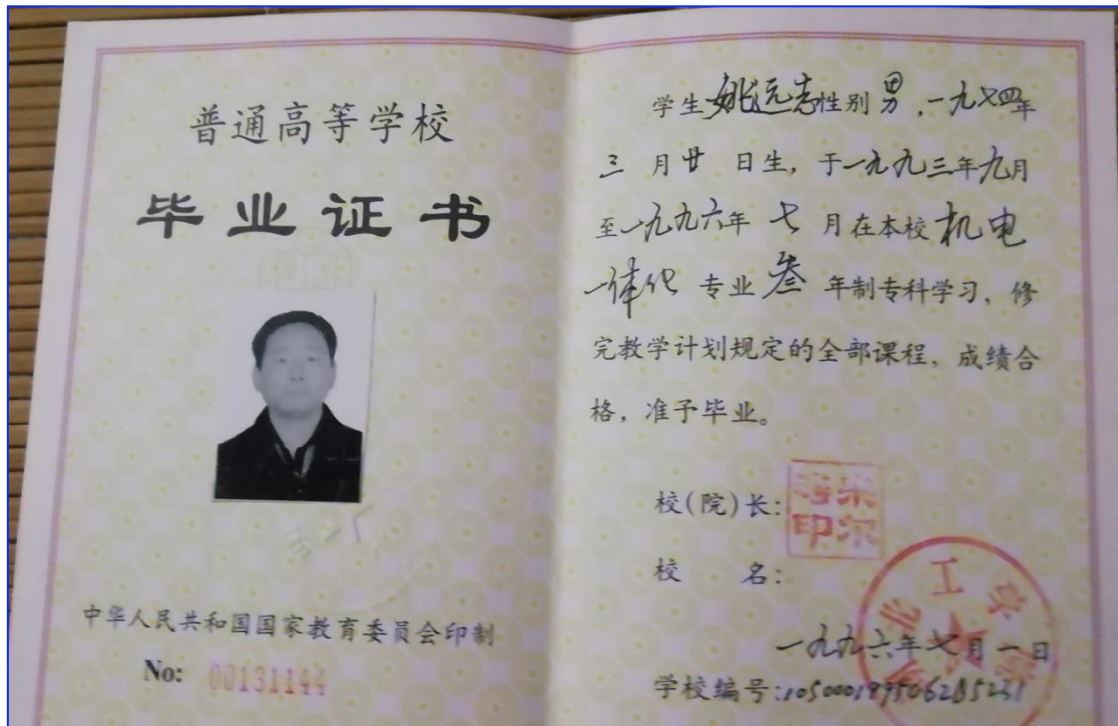 普通高等学校
毕业证书
中华人民共和国国家教育委员会印制
No: 00131144
学生姚远志性别男,一九七四年
三月廿日生,于一九九三年九月
至一九九六年七月在本校机电
一体化专业叁年制专科学习,修
完教学计划规定的全部课程,成绩合
格,准予毕业。
校(院)长:
校名:
北工
一九九六年七月一日
学校编号: